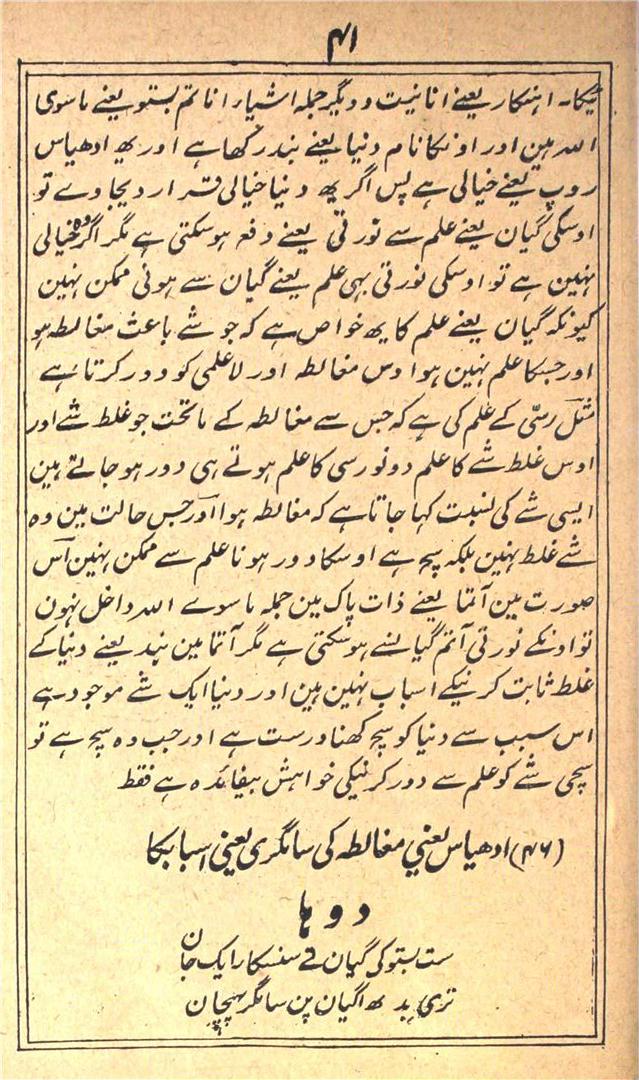 ۴۱
ٹیکا۔ اہنکار یعنے انانیت و دیگر جملہ اشیار اناتم بستو یعنے ماسوی
اللہ ہین اور اونکا نام دنیا یعنے بندر کھا ہے اور یھ ادھیاس
روپ یعنے خیالی ہے پس اگر یھ دنیا خیالی قرار دیجاوے تو
اوسکی گیان یعنے علم سے نورتی یعنے دفع ہوسکتی ہے مگر اگر وہ خیالی
نہین ہے تو اوسکی نورتی بہی علم یعنے گیان سے ہونی ممکن نہین
کیونکہ گیان یعنے علم کا یھ خواص ہے کہ جو شے باعث مغالطہ ہو
اور جسکا علم نہین ہوا اوس مغالطہ اور لاعلمی کو دور کرتا ہے
مثل رسّی کے علم کی ہے کہ جس سے مغالطہ کے ماتحت جو غلط شے اور
اوس غلط شے کا علم دونو رسی کا علم ہوتے ہی دور ہو جاتے ہین
ایسی شے کی نسبت کہا جاتا ہے کہ مغالطہ ہوا اور جس حالت مین وہ
شے غلط نہین بلکہ سچ ہے اوسکا دور ہونا علم سے ممکن نہین اس
صورت مین آتما یعنے ذات پاک مین جملہ ماسوے اللہ داخل نہون
تو اونکے نورتی آتم گیا نسے ہوسکتی ہے مگر آتما مین بند یعنے دنیا کے
غلط ثابت کرنیکے اسباب نہین ہین اور دنیا ایک شے موجود ہے
اس سبب سے دنیا کو سچ کھنا درست ہے اور جب وہ سچ ہے تو
سچی شے کو علم سے دور کرنیکی خواہش بیفائدہ ہے فقط
(۴۶) ادھیاس یعنی مغالطہ کی سانگری یعنی اسبابکا
دوہا
ست بستو کی گیان تے سنسکار ایک جان
تری بدھ اگیان پن سانگر پہچان